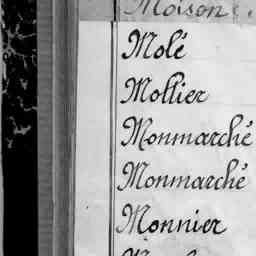 Moison
Molé
Mollier
Monmarché
Monmarché
Monnier